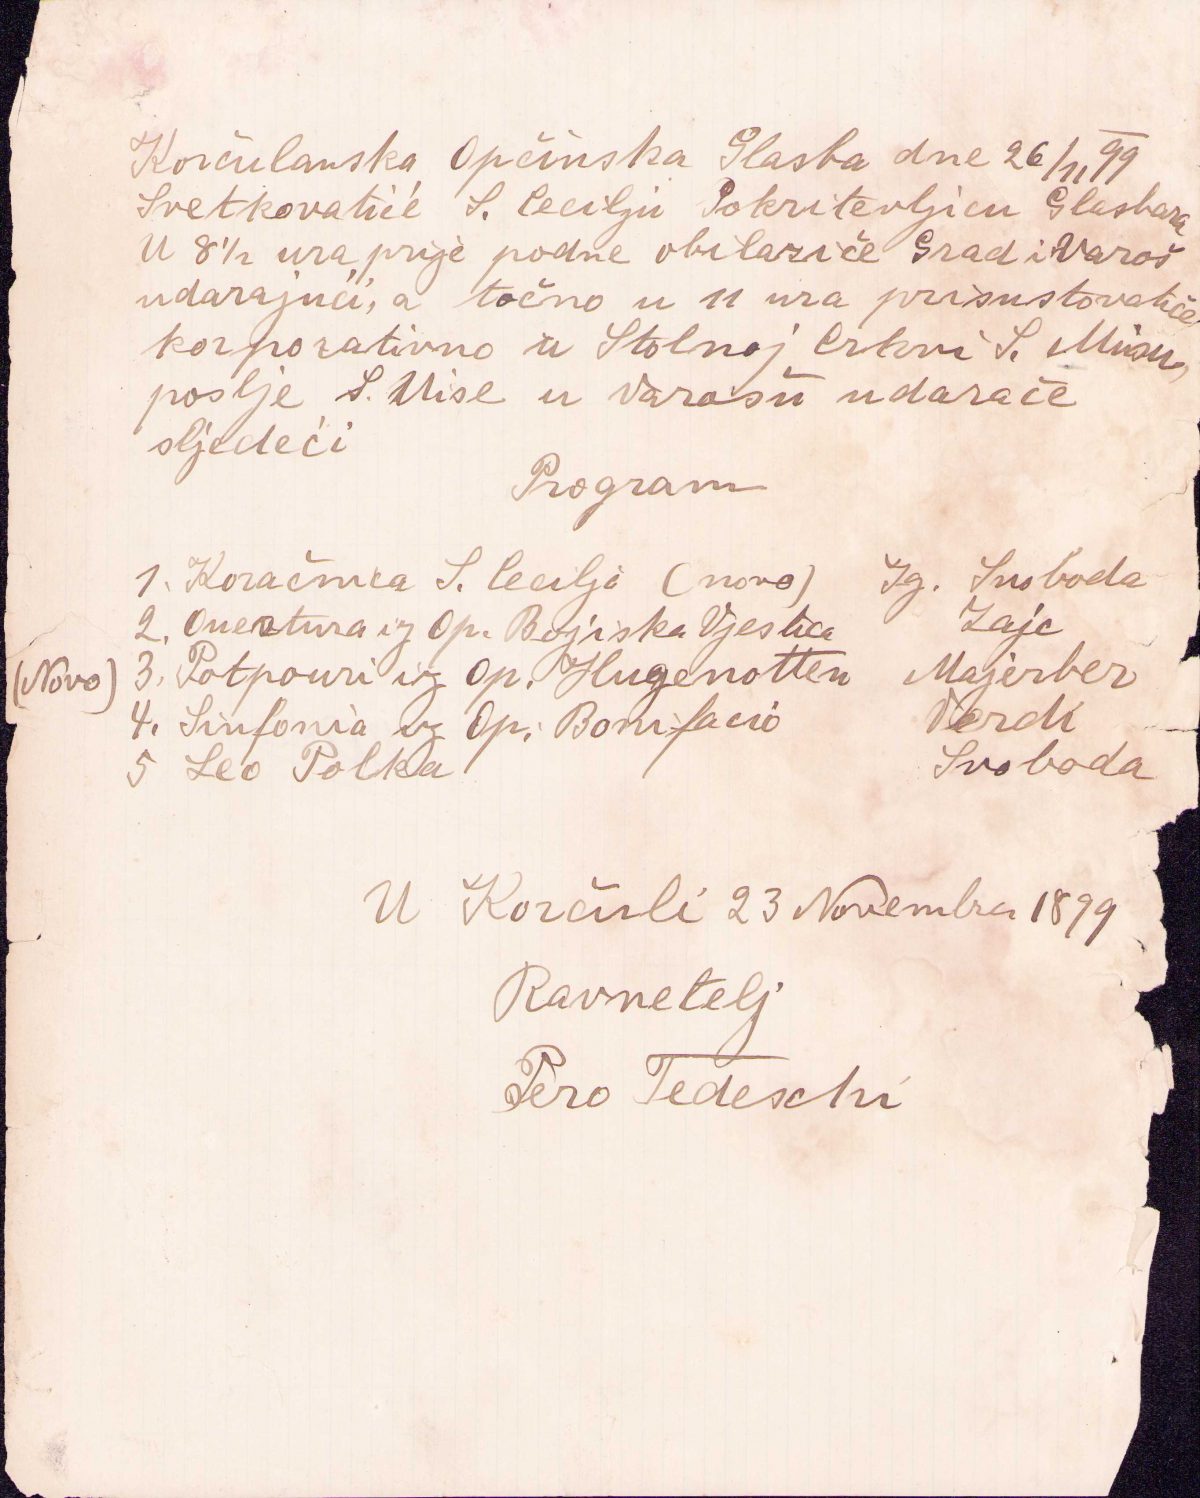 Korčulanska Općinska Glasba dne 26/11, 99
Svetkovatiće S. Ceciliju Pokriteljicu Glasbara
U 8 1/2 ura prije podne obilaziće Grad i Varoš
udarajući, a točno u 11 ura prisustovatiće
korporativno u Stolnoj Crkvi S. Misu,
poslje S. Mise u Varošu udaraće
sljedeći
Program
1. Koračnica S. Cecilja (novo) Ig. Svoboda
2. Ouertura iz Op. Bojiska Vjestica Zajc
(Novo) 3. Potpouri iz Op. Hugenotten Majerber
4. Sinfonia iz Op. Bonifacio Verdi
5 Leo Polka Svoboda
U Korčuli 23 Novembra 1899
Ravnetelj
Pero Tedeschi